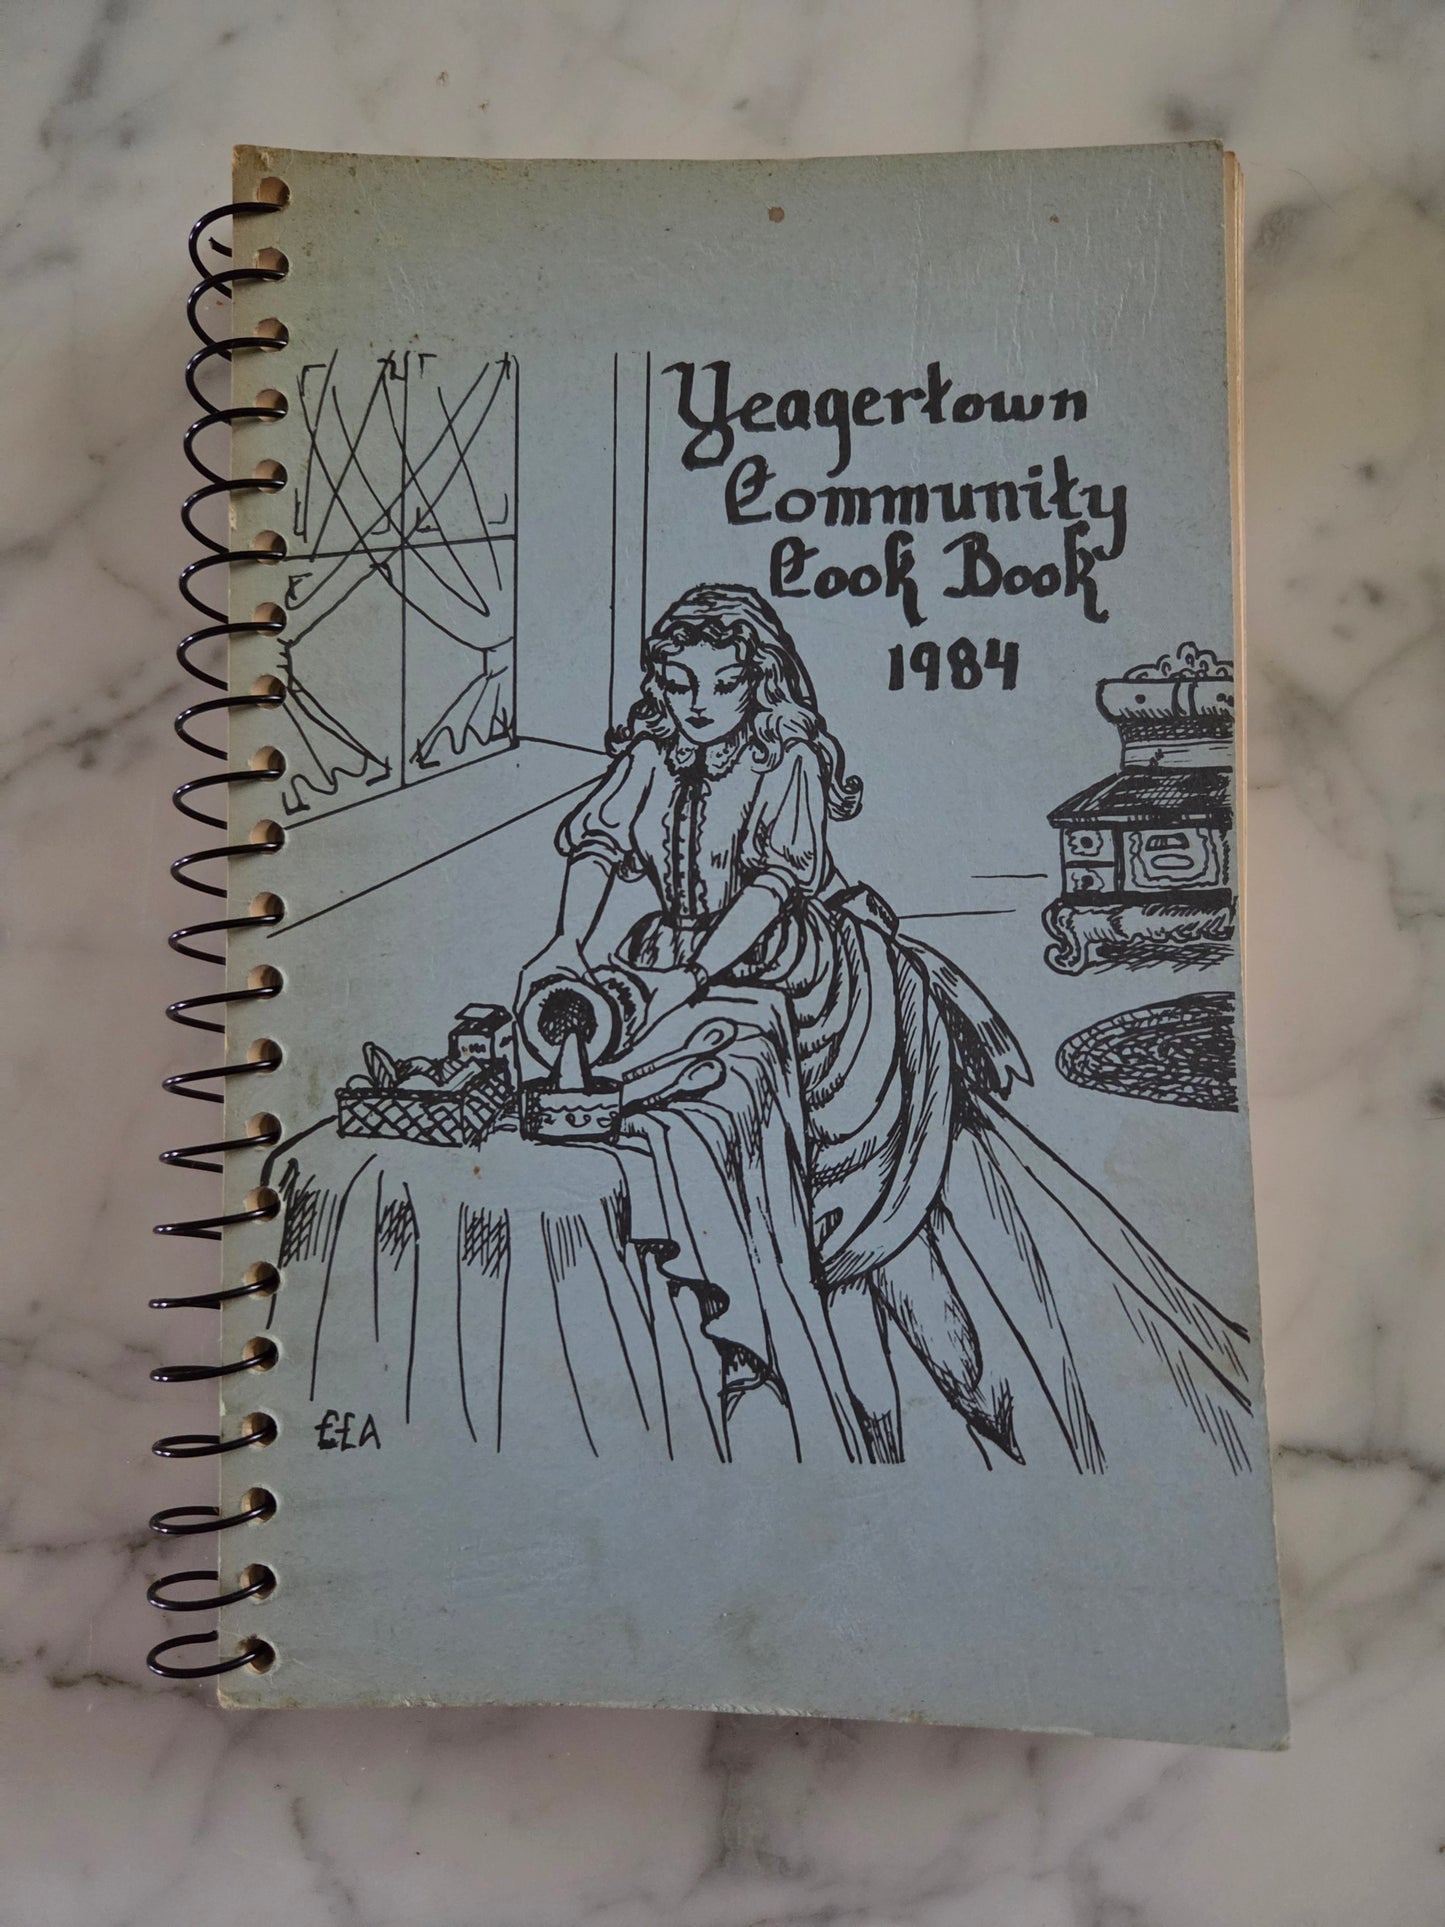 Yeagertown
Community
Cook Book
1984
EEA